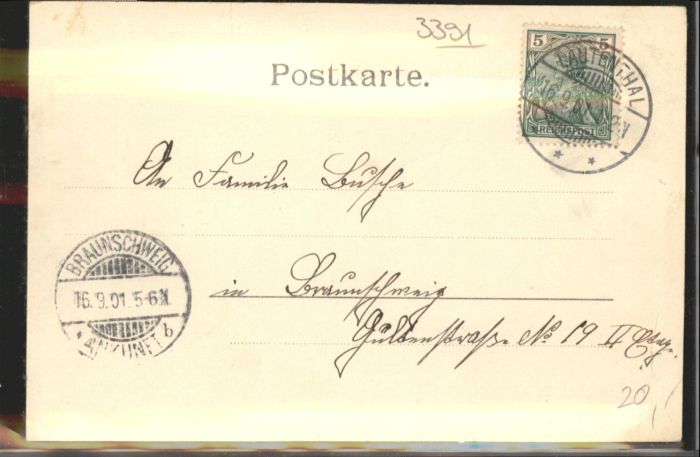 3391
Postkarte.
5 5
REICHSPOST
LAUTENTHAL
16.9.01
An Familie Busche
BRAUNSCHWEIG
16.9.01. 5-6 N.
* ANKUNFT b
in Braunschweig
Güldenstraße No 19 II Etage.
20